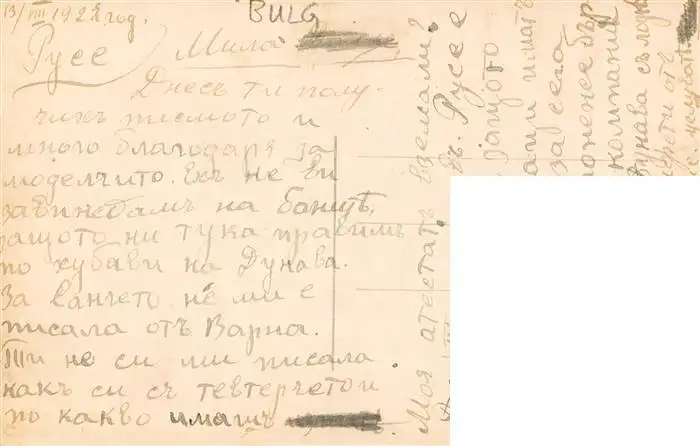 13/VIII 1922 год.
BULG
Русе
Мила
Днесъ ти полу-
чихъ писмото и
много благодаря за
моделчито. Ехъ не ви
завиждамъ на баните,
защото ни тука правимъ
по хубави на Дунава.
За Ванчето не ми е
писала отъ Варна.
Ти не си ми писала
какъ си съ тевтерчето и
по какво имашъ
Моя атестатъ вземали?
въ Русе
защото
иматъ
за сега
понеже
компания
Дунава съ